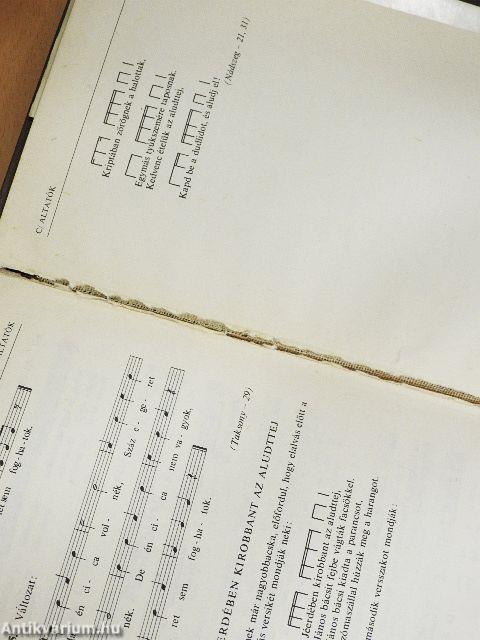 C. ALTATÓK
Kriptában zörögnek a halottak,
Egymás tyúkszemére taposnak.
Kedvenc ételük az aludttej,
Kapd be a dudlidot, és aludj el!
(Nádszeg – 21, 31)
ALTATÓK
sem fog-ha-tok.
Változat:
én ci-ca vol-nék, Száz e-ge-ret
nék. De én ci-ca nem va-gyok,
ret sem fog-ha-tok.
(Taksony – 29)
KIROBBANT AZ ALUDTTEJ
már nagyobbacska, előfordul, hogy elalvás előtt a
versikét mondják neki:
kirobbant az aludttej,
János bácsit fejbe vágták facsőkkel.
János bácsi kiadta a parancsot,
húzzák meg a harangot.
második versszakot mondják:
Antikvarium.hu